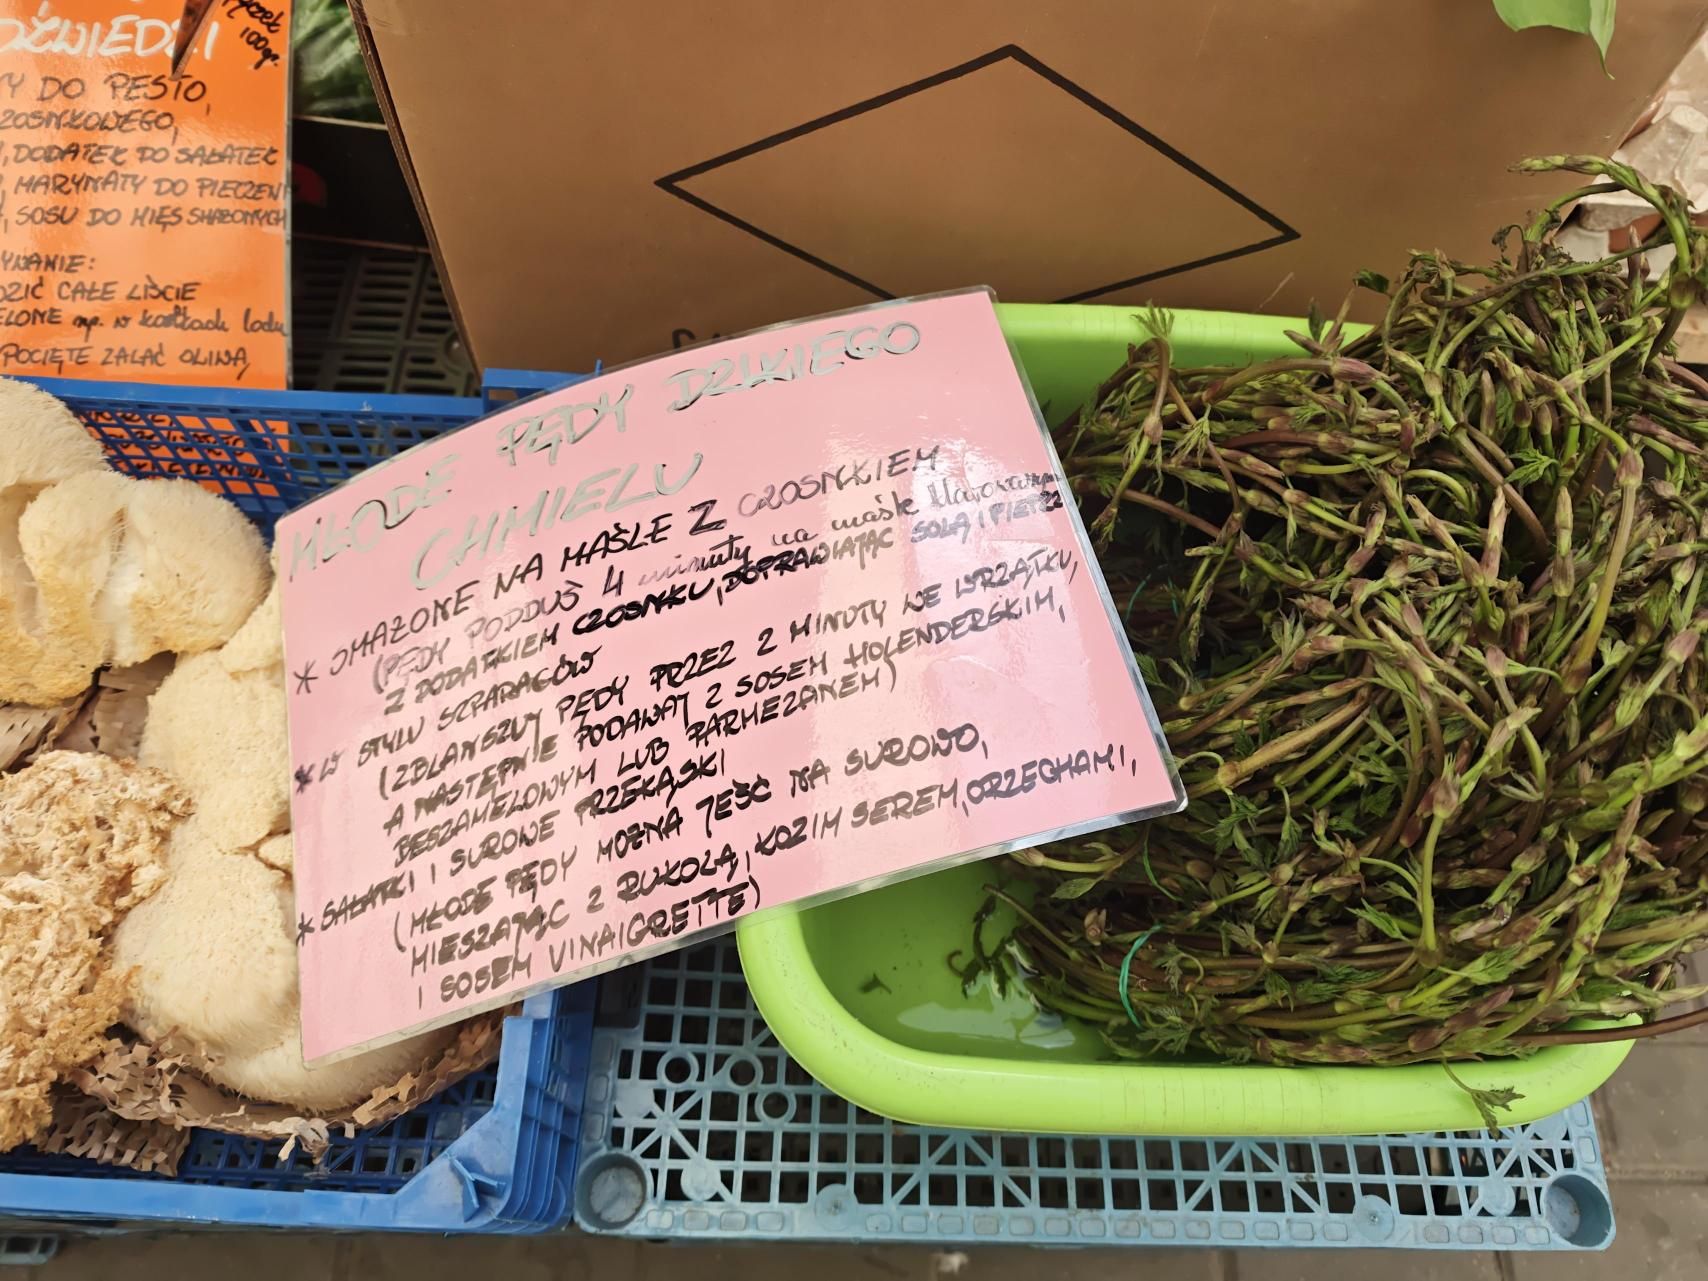 100gr.
DŹWIEDZI
TY DO PESTO,
ZOSNKOWEGO,
, DODATEK DO SAŁATEK
, MARYNATY DO PIECZENI
, SOSU DO MIĘS SMAŻONYCH
YWANIE:
OZIĆ CAŁE LIŚCIE
ELONE np. w kostkach lodu
POCIĘTE ZALAĆ OLIWĄ,
MŁODE PĘDY DZIKIEGO
CHMIELU
* SMAŻONE NA MAŚLE Z CZOSNKIEM
(PĘDY PODDUŚ 4 minuty na maśle klarowanym
Z DODATKIEM CZOSNKU, DOPRAWIAJĄC SOLĄ I PIEPRZ
* W STYLU SZPARAGÓW
(ZBLANSZUJ PĘDY PRZEZ 2 MINUTY WE WRZĄTKU,
A NASTĘPNIE PODAWAJ Z SOSEM HOLENDERSKIM,
BESZAMELOWYM LUB PARMEZANEM)
* SAŁATKI I SUROWE PRZEKĄSKI
(MŁODE PĘDY MOŻNA JEŚĆ NA SUROWO,
MIESZAJĄC Z RUKOLĄ, KOZIM SEREM, ORZECHAMI,
I SOSEM VINAIGRETTE)